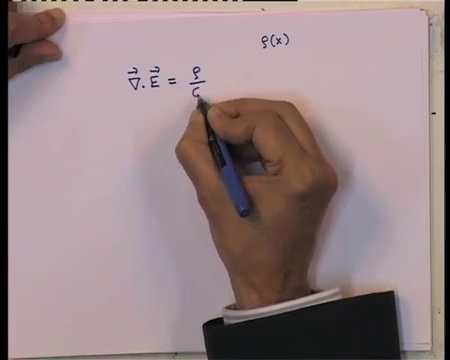 ρ(x)
∇⃗ . E⃗ = ρ/